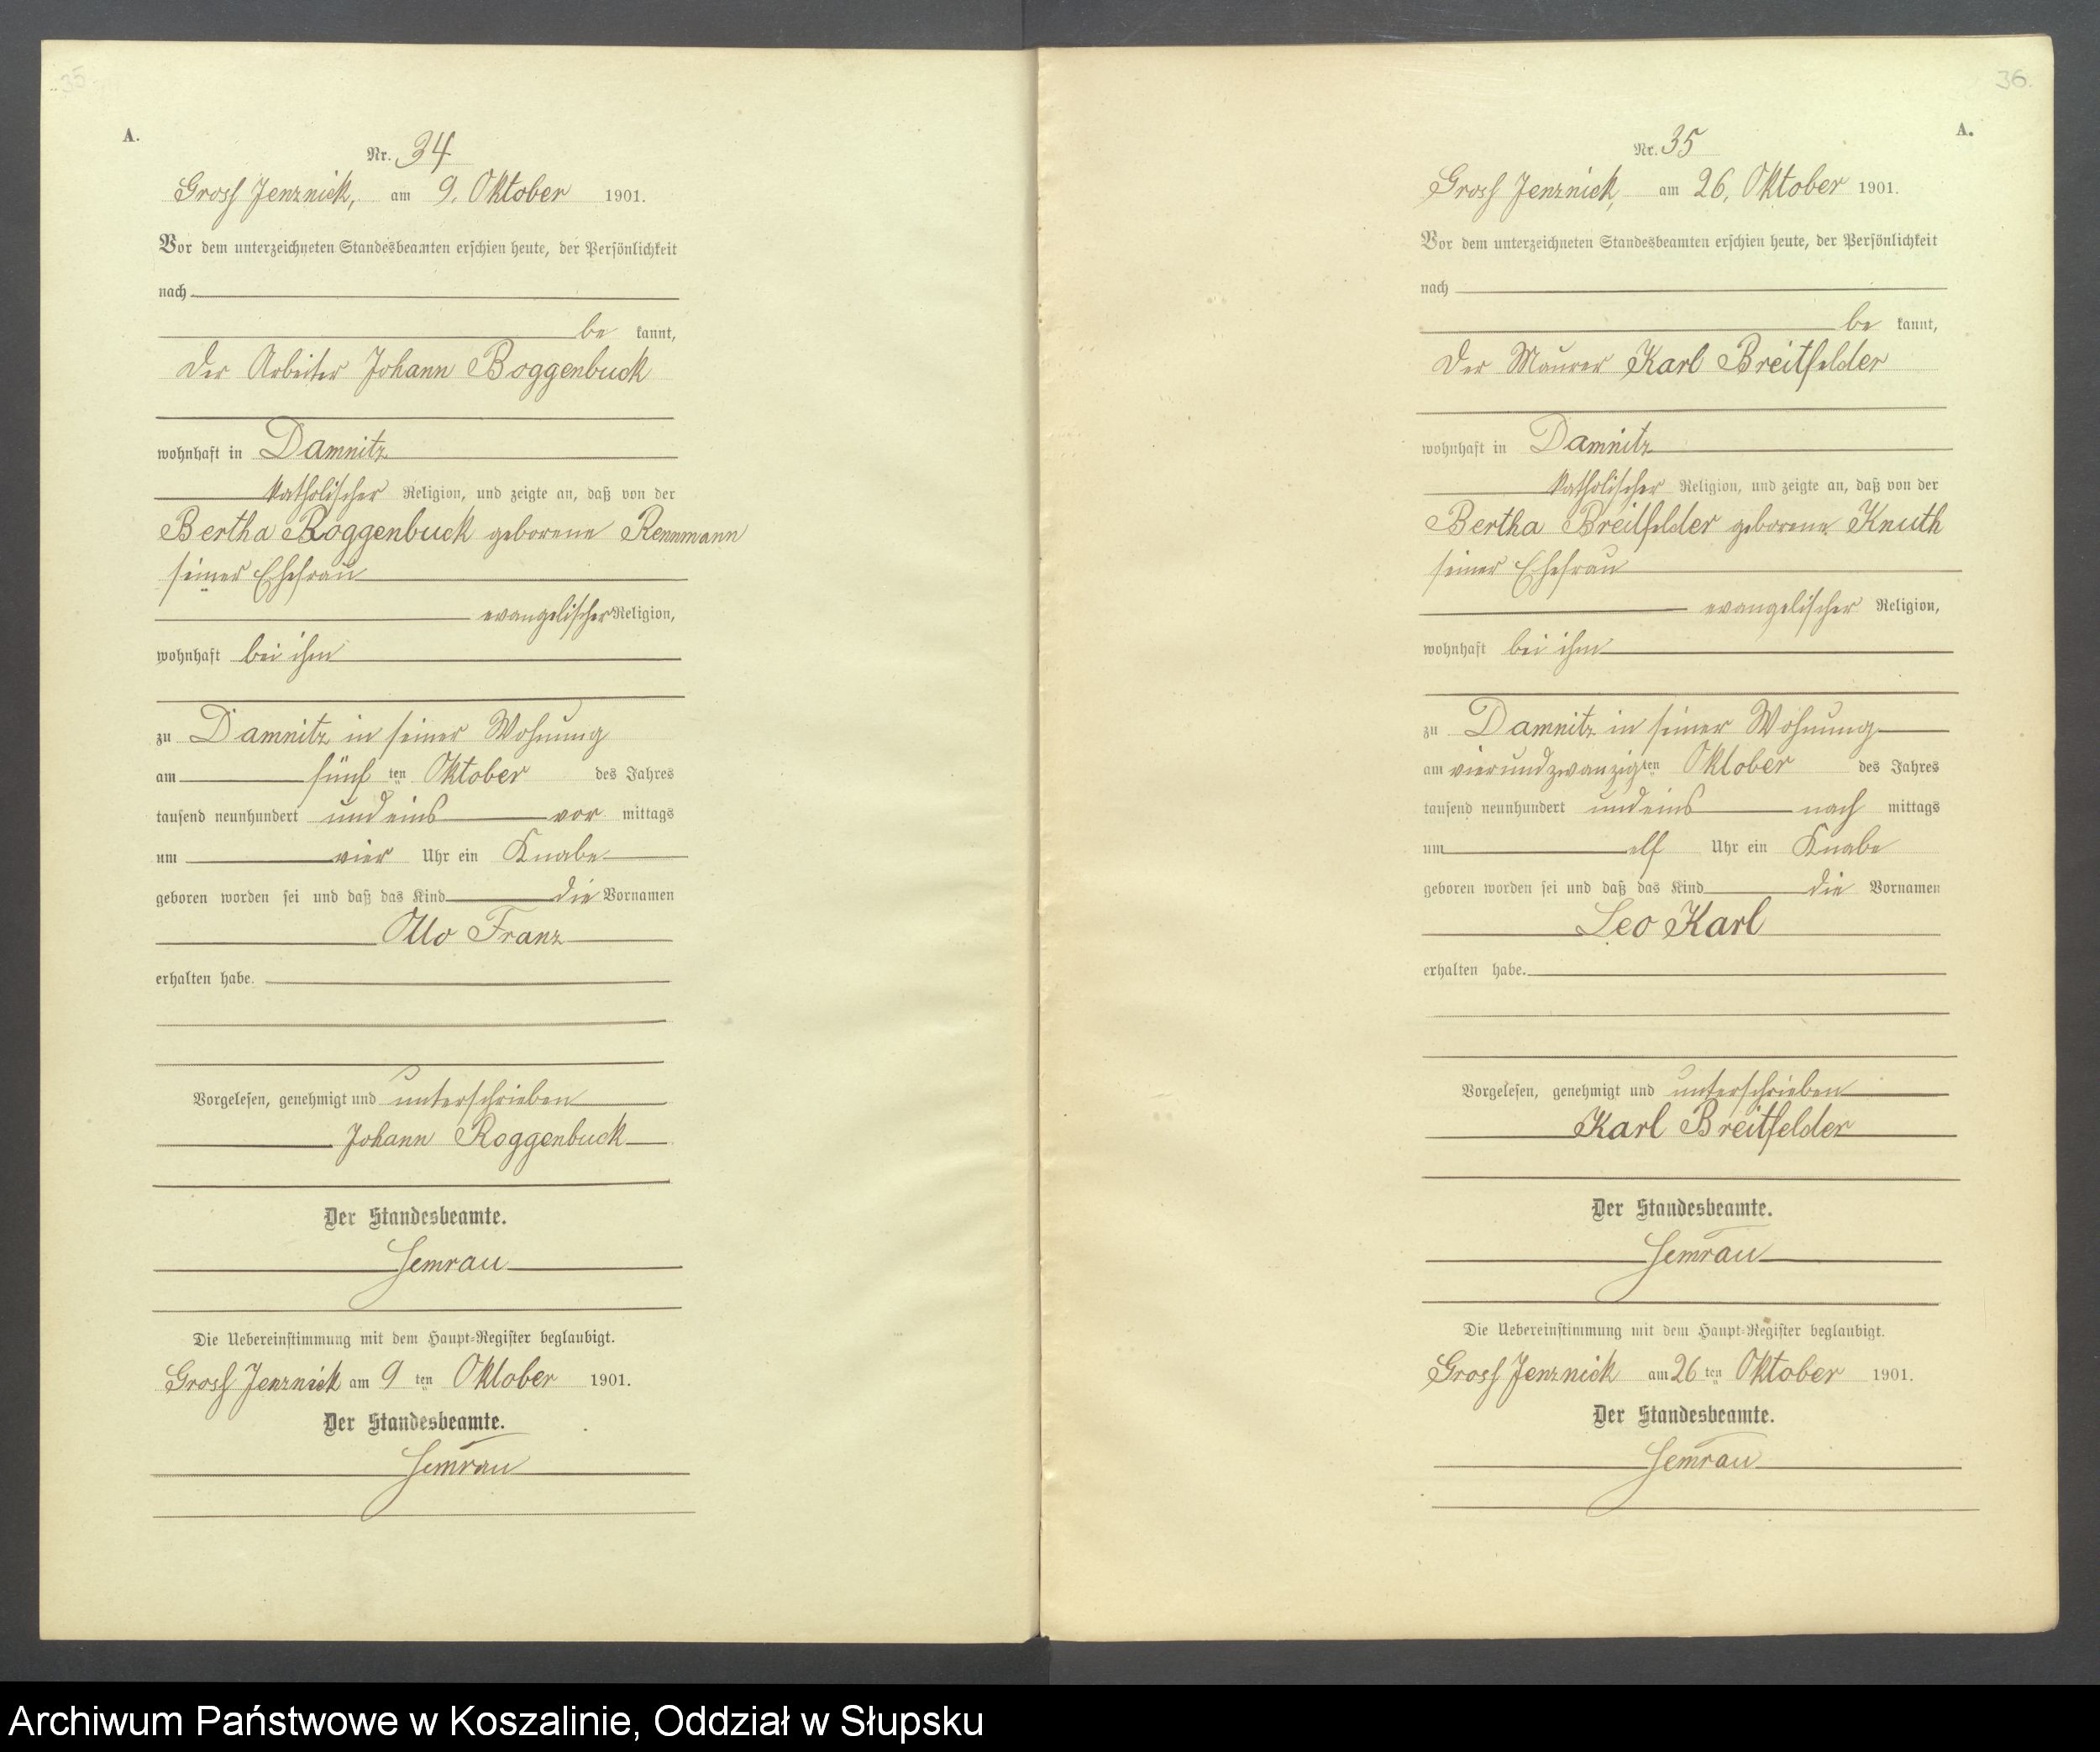 35
A.
Nr. 34
Gross Jenznick, am 9. Oktober 1901.
Vor dem unterzeichneten Standesbeamten erschien heute, der Persönlichkeit
nach
be kannt,
der Arbeiter Johann Boggenbuck
wohnhaft in Damnitz
katholischer Religion, und zeigte an, daß von der
Bertha Roggenbuck geborene Rennmann
seiner Ehefrau
evangelischer Religion,
wohnhaft bei ihm
zu Damnitz in seiner Wohnung
am fünf ten Oktober des Jahres
tausend neunhundert undeins vor mittags
um vier Uhr ein Knabe
geboren worden sei und daß das Kind die Vornamen
Otto Franz
erhalten habe.
Vorgelesen, genehmigt und unterschrieben
Johann Roggenbuck
Der Standesbeamte.
Semrau
Die Uebereinstimmung mit dem Haupt-Register beglaubigt.
Gross Jenznick am 9 ten Oktober 1901.
Der Standesbeamte.
Semrau
36.
A.
Nr. 35
Gross Jenznick, am 26. Oktober 1901.
Vor dem unterzeichneten Standesbeamten erschien heute, der Persönlichkeit
nach
be kannt,
der Maurer Karl Breitfelder
wohnhaft in Damnitz
katholischer Religion, und zeigte an, daß von der
Bertha Breitfelder geborene Knuth
seiner Ehefrau
evangelischer Religion,
wohnhaft bei ihm
zu Damnitz in seiner Wohnung
am vierundzwanzigsten Oktober des Jahres
tausend neunhundert undeins nach mittags
um elf Uhr ein Knabe
geboren worden sei und daß das Kind die Vornamen
Leo Karl
erhalten habe.
Vorgelesen, genehmigt und unterschrieben
Karl Breitfelder
Der Standesbeamte.
Semrau
Die Uebereinstimmung mit dem Haupt-Register beglaubigt.
Gross Jenznick am 26 ten Oktober 1901.
Der Standesbeamte.
Semrau
Archiwum Państwowe w Koszalinie, Oddział w Słupsku